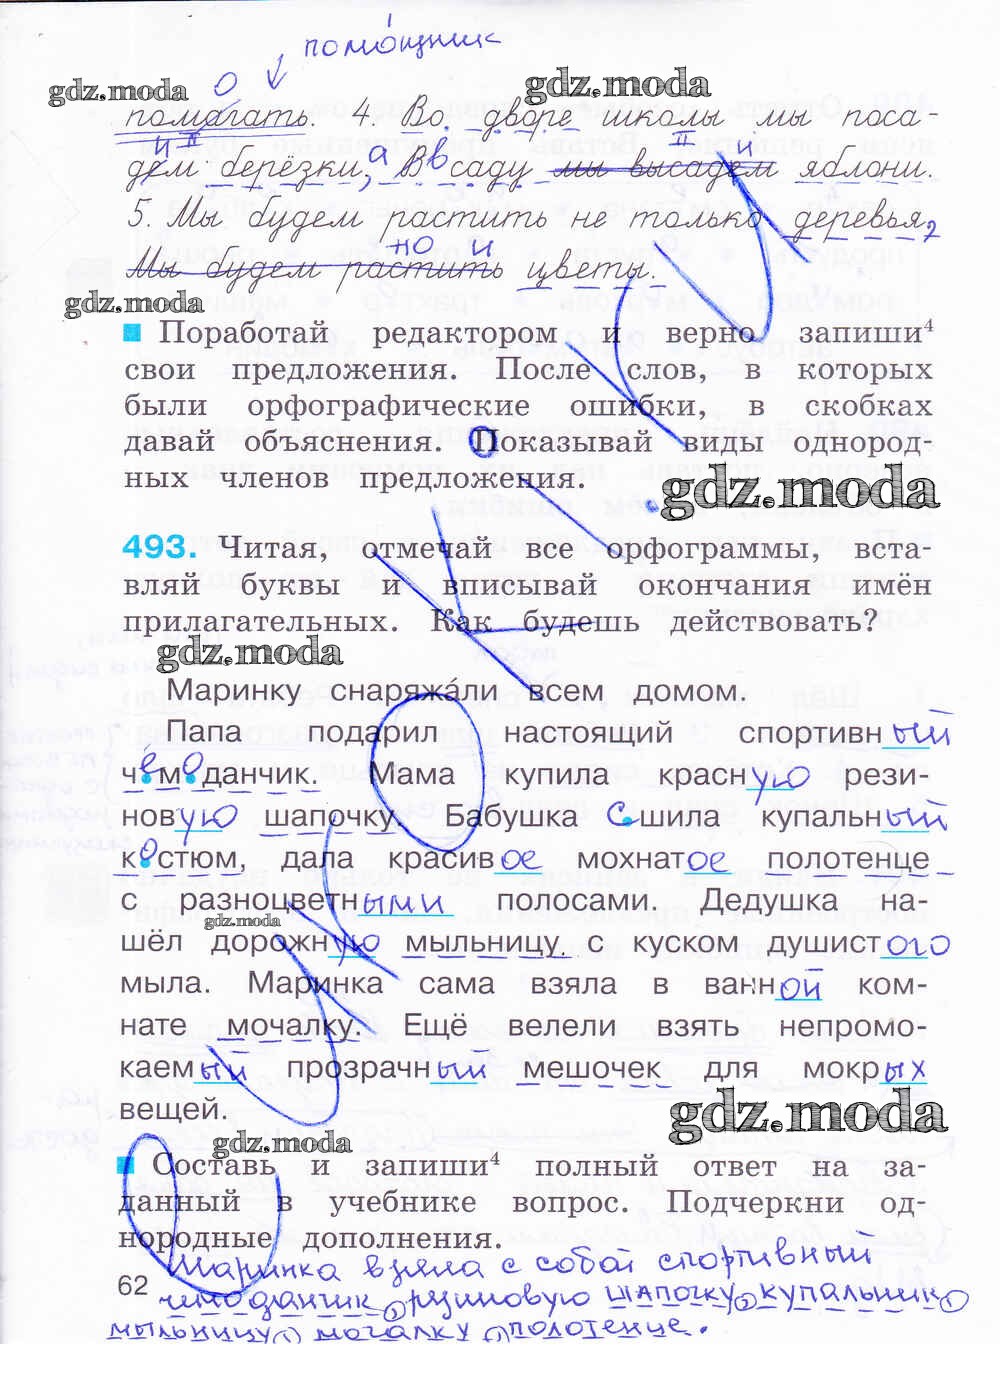 помощник
gdz.moda gdz.moda
о
помагать. 4. Во дворе школы мы поса-
дем берёзки, а Вв саду мы высадем яблони.
и п п и
5. Мы будем растить не только деревья,
но и
Мы будем растить цветы.
gdz.moda
Поработай редактором и верно запиши⁴
свои предложения. После слов, в которых
были орфографические ошибки, в скобках
давай объяснения. Показывай виды однород-
ных членов предложения.
gdz.moda
493. Читая, отмечай все орфограммы, вста-
вляй буквы и вписывай окончания имён
прилагательных. Как будешь действовать?
gdz.moda
Маринку снаряжа́ли всем домом.
Папа подарил настоящий спортивный
чемоданчик. Мама купила красную рези-
новую шапочку. Бабушка Сшила купальный
костюм, дала красивое мохнатое полотенце
с разноцветными полосами. Дедушка на-
gdz.moda
шёл дорожную мыльницу с куском душистого
мыла. Маринка сама взяла в ванной ком-
нате мочалку. Ещё велели взять непромо-
каемый прозрачный мешочек для мокрых
вещей.
gdz.moda
gdz.moda
Составь и запиши⁴ полный ответ на за-
данный в учебнике вопрос. Подчеркни од-
нородные дополнения.
Маринка взяла с собой спортивный
62
чемоданчик, резиновую шапочку, купальник,
мыльницу, мочалку, полотенце.